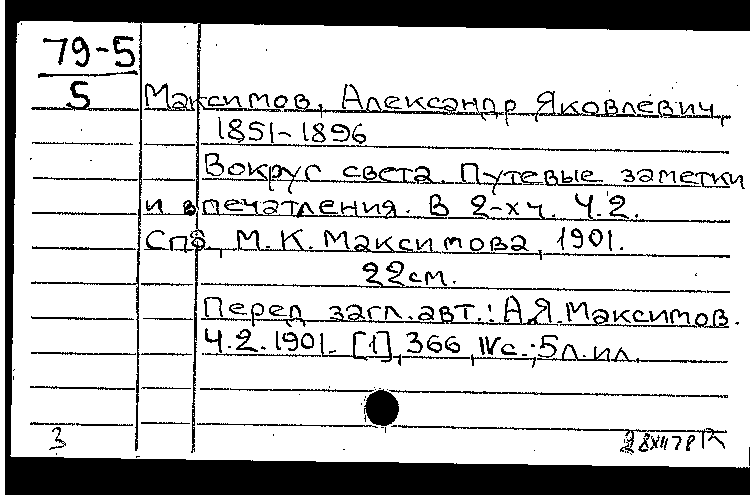 79-5
5
Максимов, Александр Яковлевич,
1851-1896
Вокруг света. Путевые заметки
и впечатления. В 2-х ч. Ч.2.
Спб., М.К.Максимова, 1901.
22см.
Перед загл.авт.: А.Я.Максимов.
Ч.2. 1901. [1], 366, IVс.; 5л.ил.
3